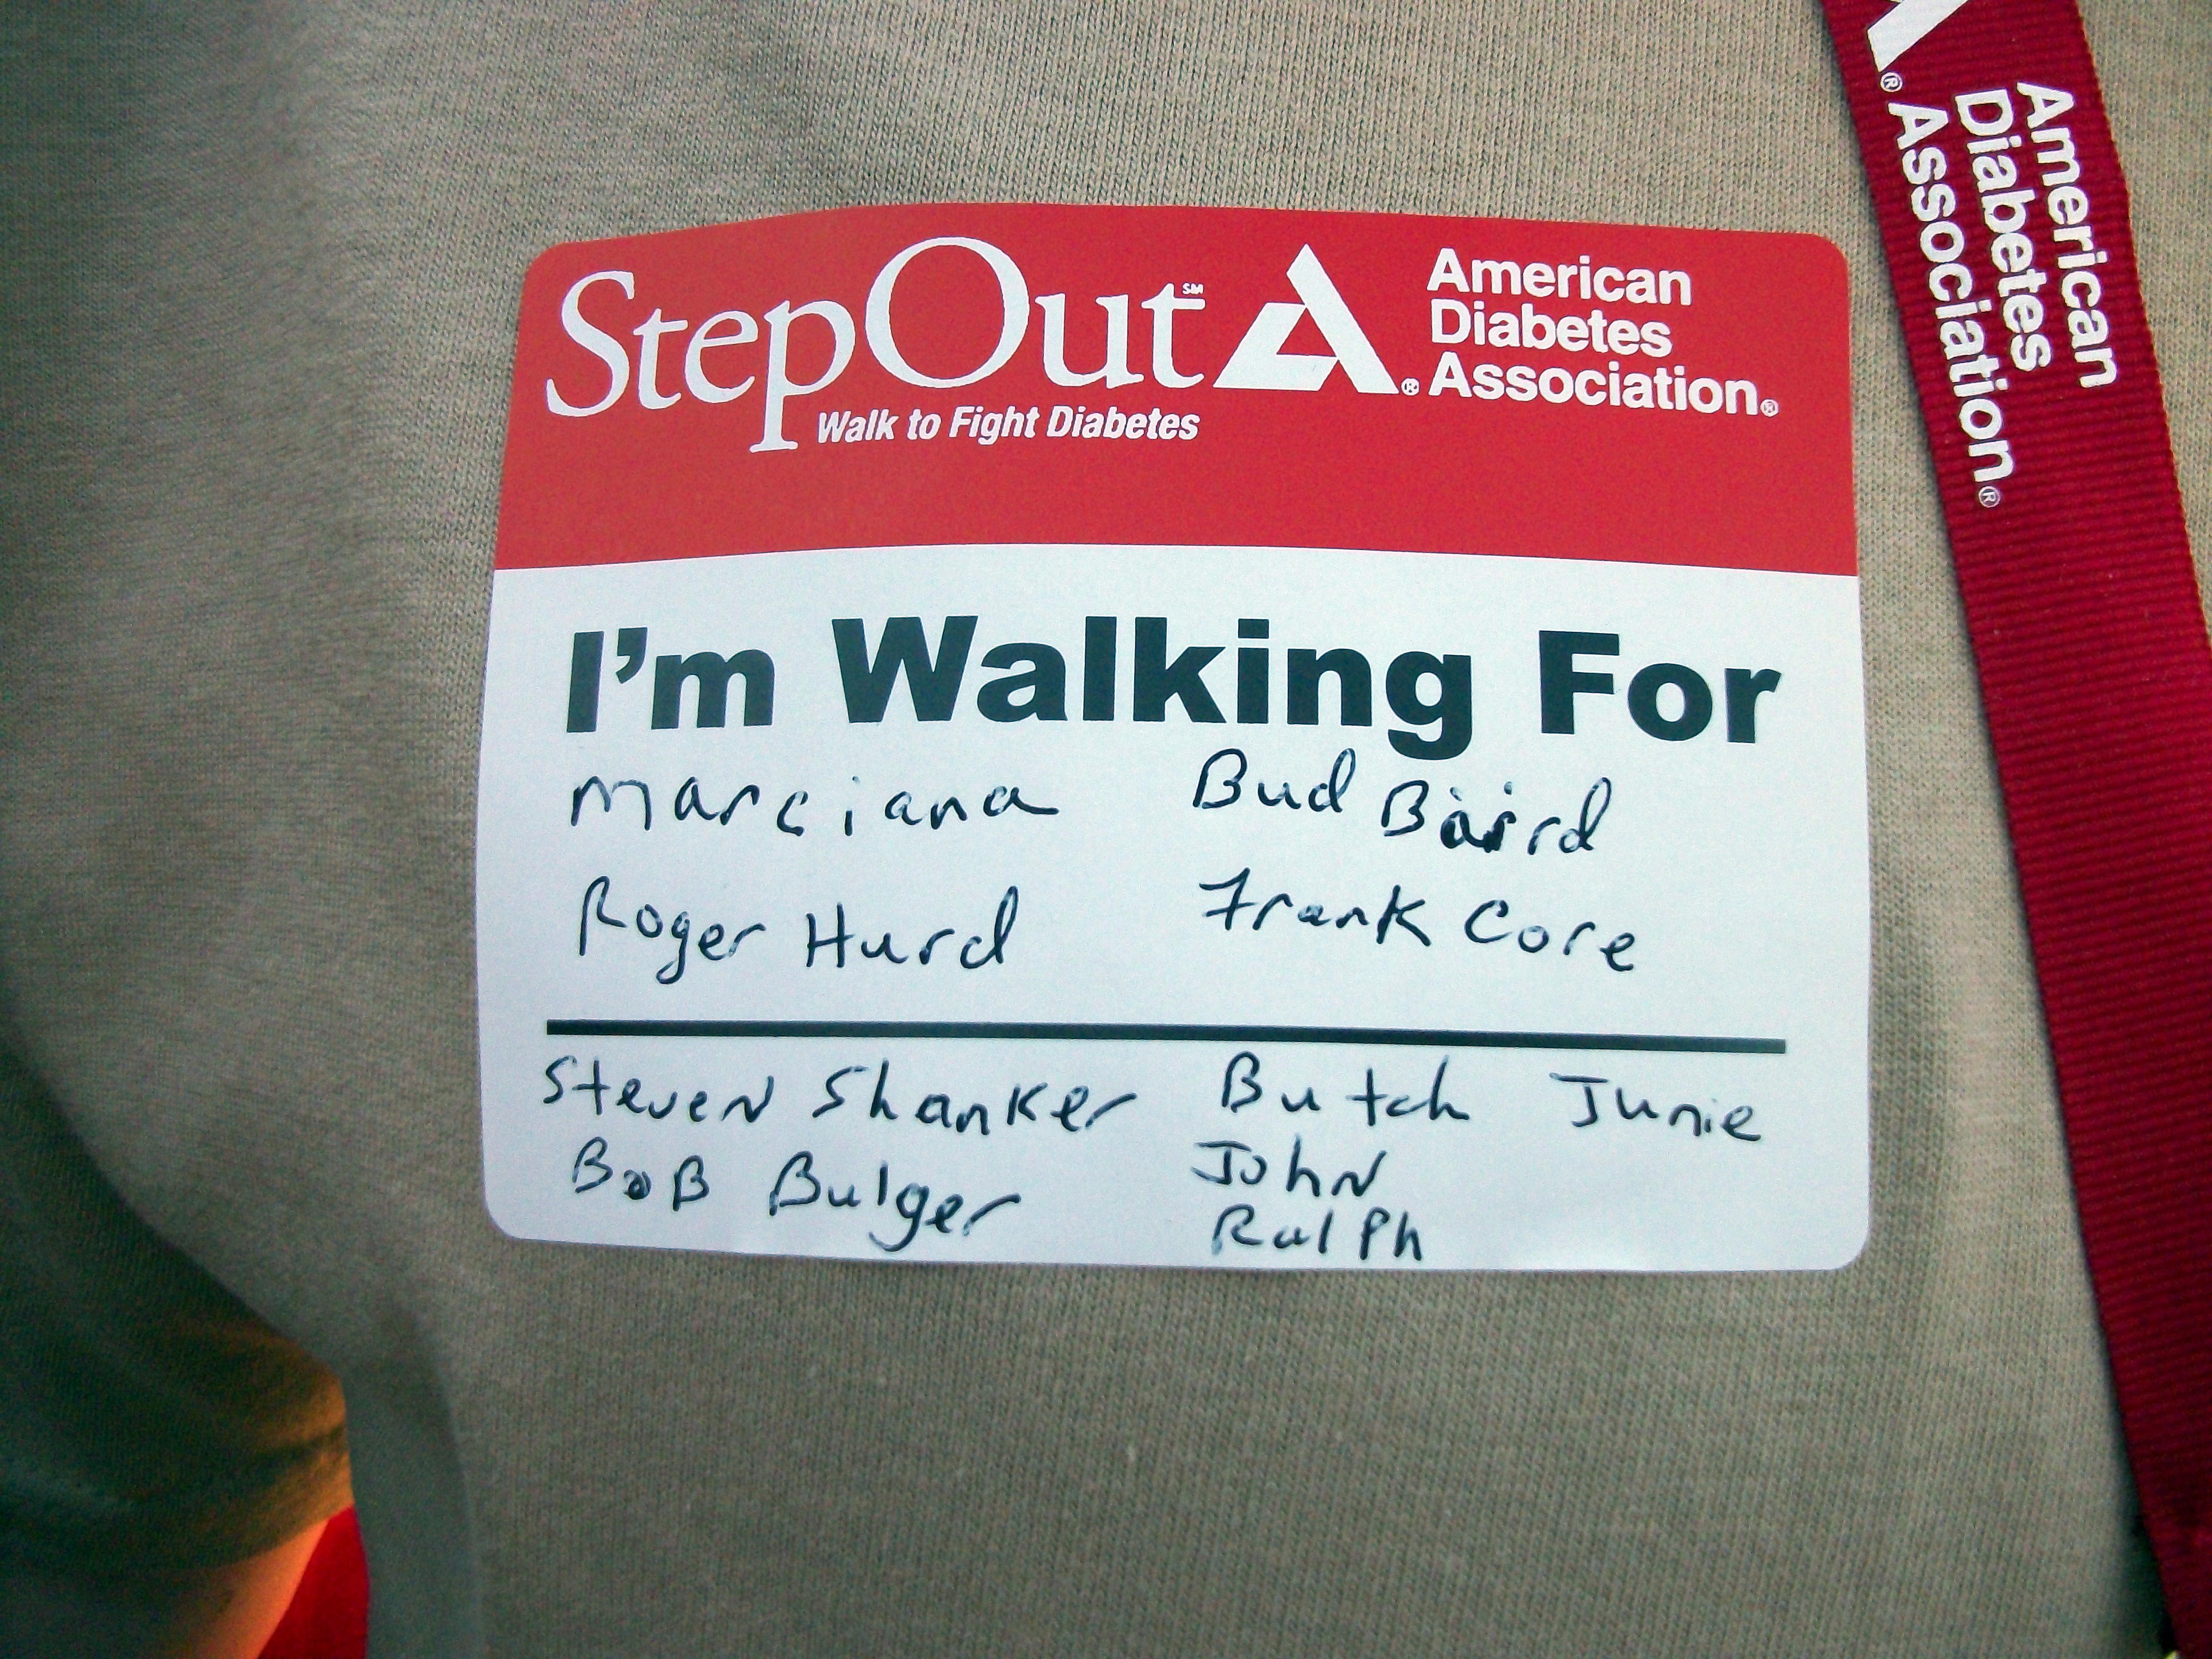 StepOut℠
Walk to Fight Diabetes
American
Diabetes
Association®
I'm Walking For
Marciana
Bud Baird
Roger Hurd
Frank Core
Steven Shanker
Butch Junie
BoB Bulger
John
Ralph
American
Diabetes
Association®